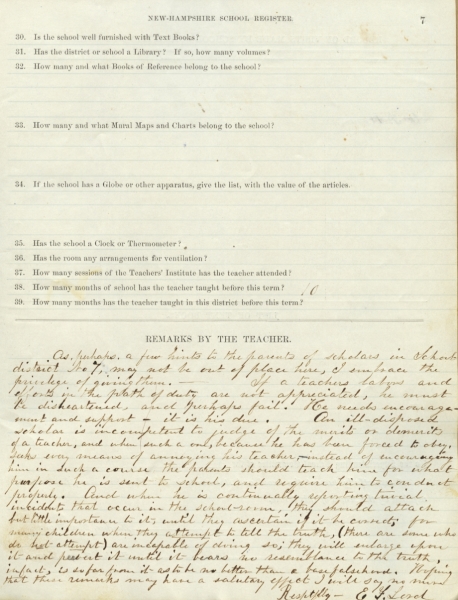 NEW-HAMPSHIRE SCHOOL REGISTER. 7
30. Is the school well furnished with Text Books?
31. Has the district or school a Library? If so, how many volumes?
32. How many and what Books of Reference belong to the school?
33. How many and what Mural Maps and Charts belong to the school?
34. If the school has a Globe or other apparatus, give the list, with the value of the articles.
35. Has the school a Clock or Thermometer?
36. Has the room any arrangements for ventilation?
37. How many sessions of the Teachers' Institute has the teacher attended?
38. How many months of school has the teacher taught before this term? 10
39. How many months has the teacher taught in this district before this term?
REMARKS BY THE TEACHER.
As, perhaps, a few hints to the parents of scholars in School
district No 7, may not be out of place here, I embrace the
privilege of giving them. — If a teachers labors and
efforts in the path of duty are not appreciated, he must
be disheartened, and perhaps fail. He needs encourage-
ment and support — it is his due. An ill-disposed
scholar is incompetent to judge of the merits or demerits
of a teacher, and when such a one, because he has been forced to obey,
seeks every means of annoying his teacher, instead of encouraging
him in such a course the parents should teach him for what
purpose he is sent to school, and require him to conduct
properly. And when he is continually reporting trivial
incidents that occur in the school-room, they should attach
but little importance to it, until they ascertain if it be correct, for
many children when they attempt to tell the truth, (there are some who
do not attempt) are incapable of doing so; they will enlarge upon
it and pervert it until it bears no resemblance to the truth,
in fact, is so far from it as to be no better than a base falsehood. Hoping
that these remarks may have a salutary effect I will say no more
Respectfully — E. J. Lord